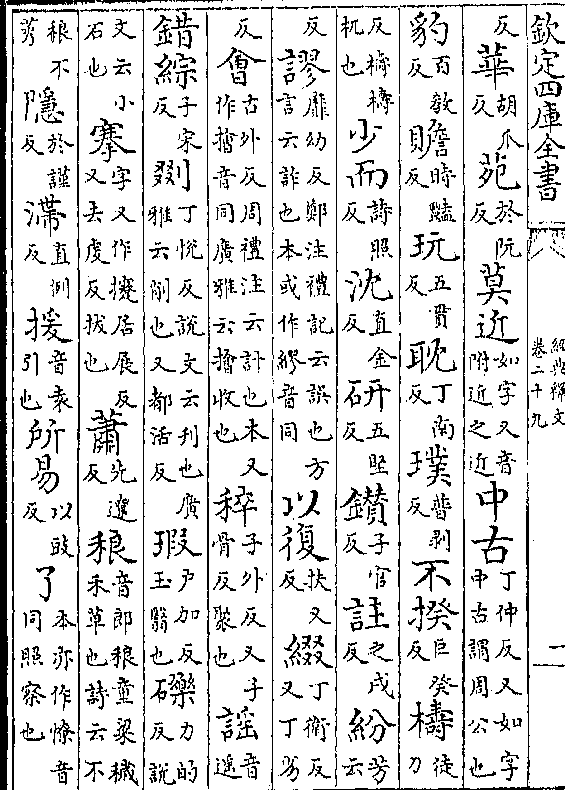 欽定四庫全書 經典釋文 卷二十九 一
反華胡瓜反苑於阮反莫近如字又音附近之近中古丁仲反又如字中古謂周公也
豹百教反贍時豔反玩五貫反耽丁南反璞普剥反不揆巨癸反檮徒刀
反檮檮杌也少而詩照反沈直金反研五堅反鑚子官反註之戍反紛芳云
反謬靡幼反鄭注禮記云誤也方言云詐也本或作繆音同以復扶又反綴丁衛反又丁劣
反會古外反周禮注云計也本又作音同廣雅云收也稡子外反又子骨反聚也謡音遥
錯綜子宋反剟丁悦反説文云刋也廣雅云削也又都活反瑕户加反玉翳也礫力的反説
文云小石也搴字又作攓居展反又去虔反拔也蕭先遼反稂音郎稂童粱穢禾草也詩云不
稂不莠隱於謹反滯直例反援音袁引也所易以豉反了本亦作憭音同照察也